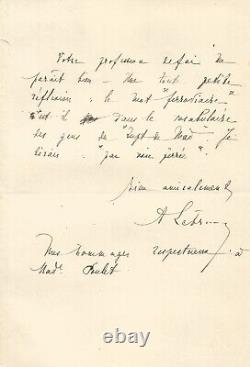 Votre profession de foi me
paraît bon - Une toute petite
réflexion : le mot "ferroviaire"
est-il dans le vocabulaire
des gens du Je
dirais : "par voie ferrée"
bien amicalement
A Lebrun
Mes hommages respectueux à
Made